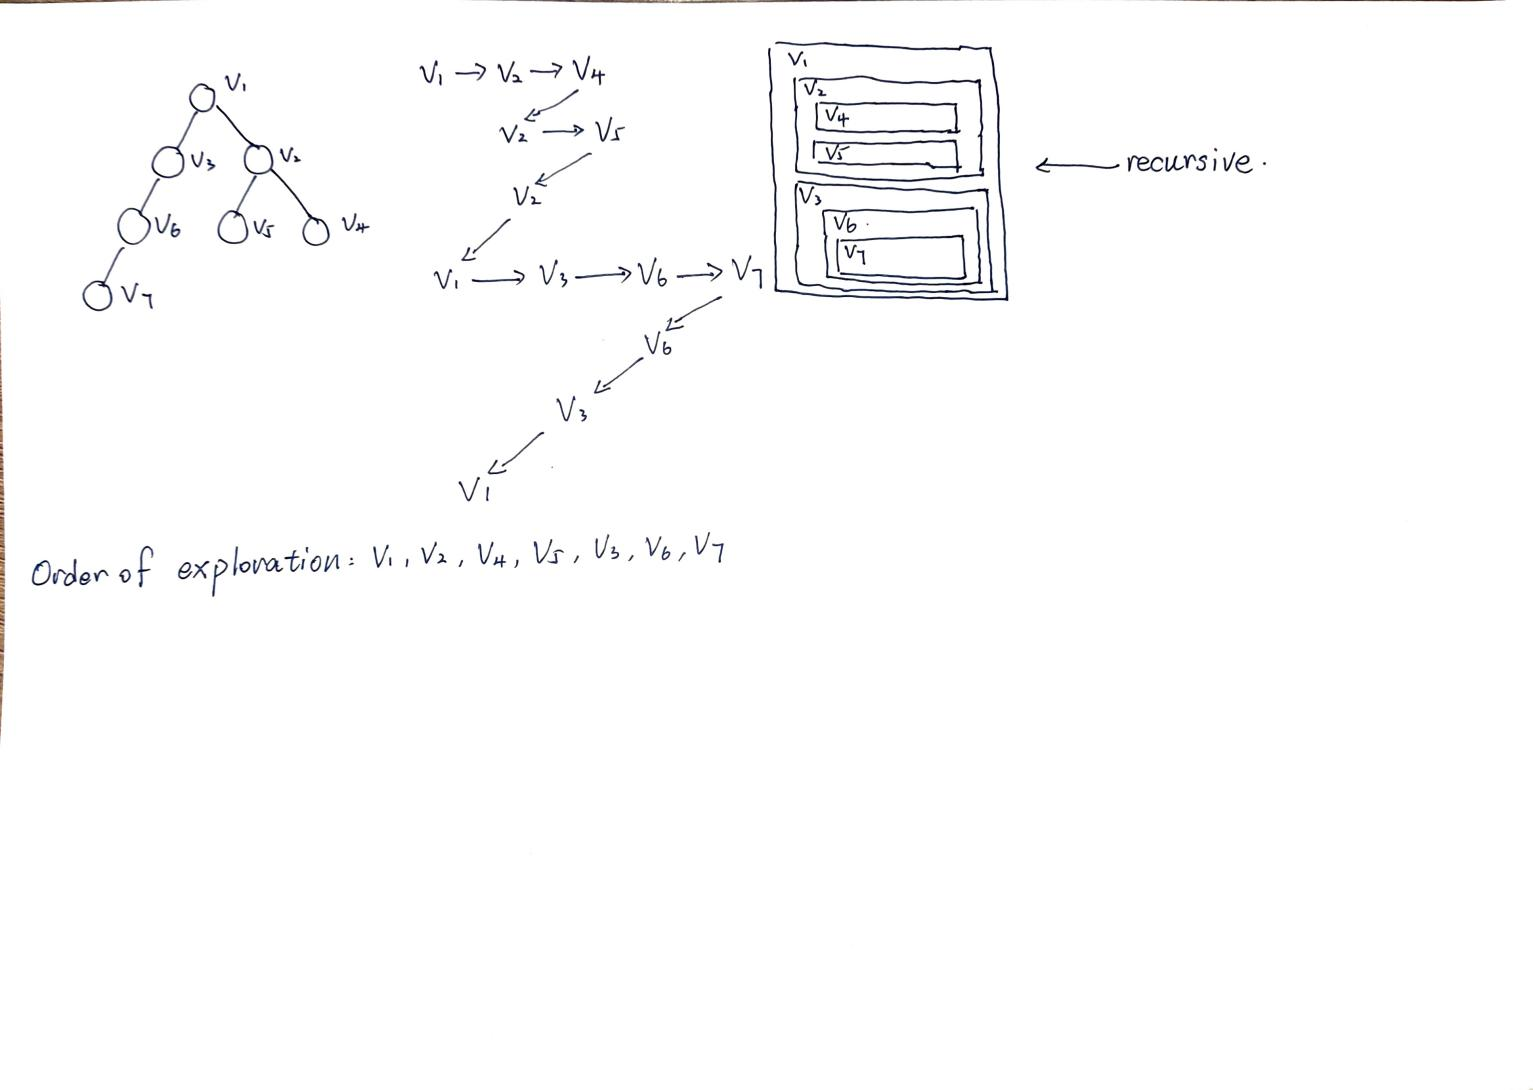 V1
V3 V2
V6 V5 V4
V7
V1 → V2 → V4
V2 → V5
V2
V1 → V3 → V6 → V7
V6
V3
V1
V1
V2
V4
V5
V3
V6
V7
← recursive.
Order of exploration: V1, V2, V4, V5, V3, V6, V7